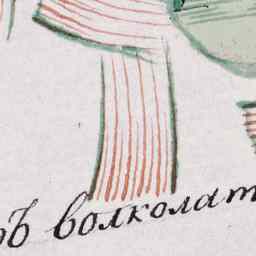 ъ волколат